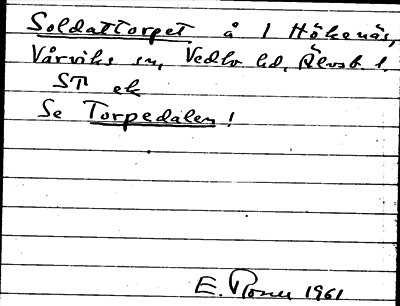 Soldattorpet å 1 Hökenäs,
Vårviks sn, Vedbo hd, Älvsb. l.
ST ek
Se Torpedalen!
E. 1961